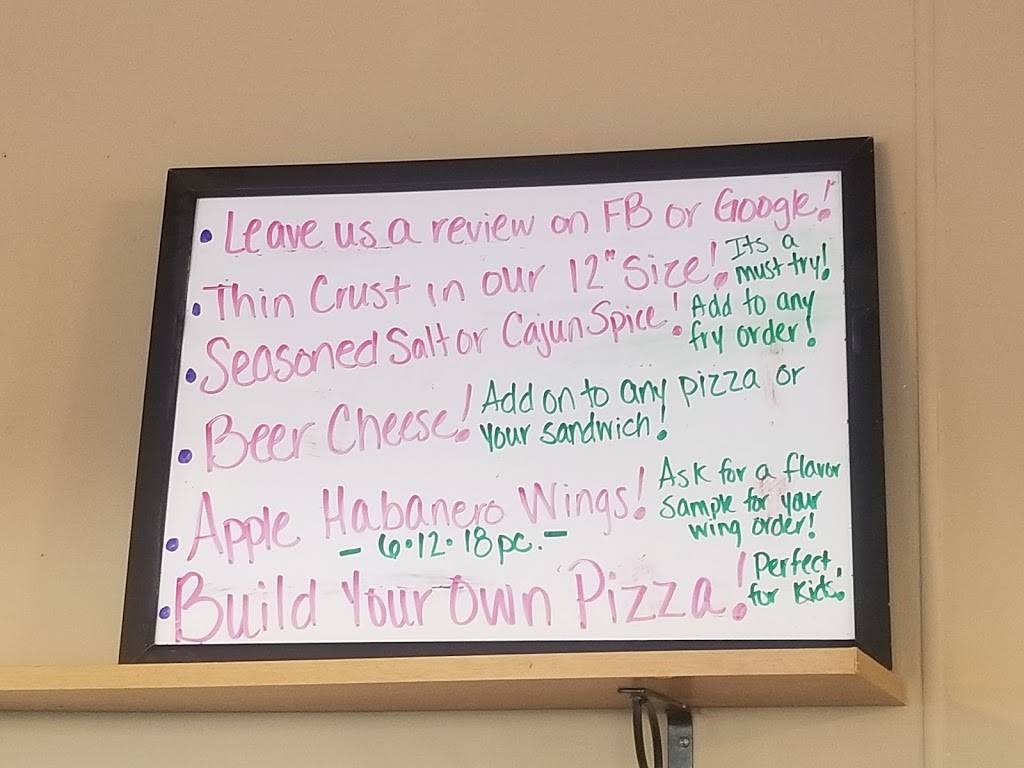 • Leave us a review on FB or Google!
• Thin Crust in our 12" Size! Its a must try!
• Seasoned Salt or Cajun Spice! Add to any fry order!
• Beer Cheese! Add on to any pizza or your sandwich!
• Apple Habanero Wings! Ask for a flavor sample for your wing order!
- 6•12•18 pc. -
• Build Your Own Pizza! Perfect for Kids.